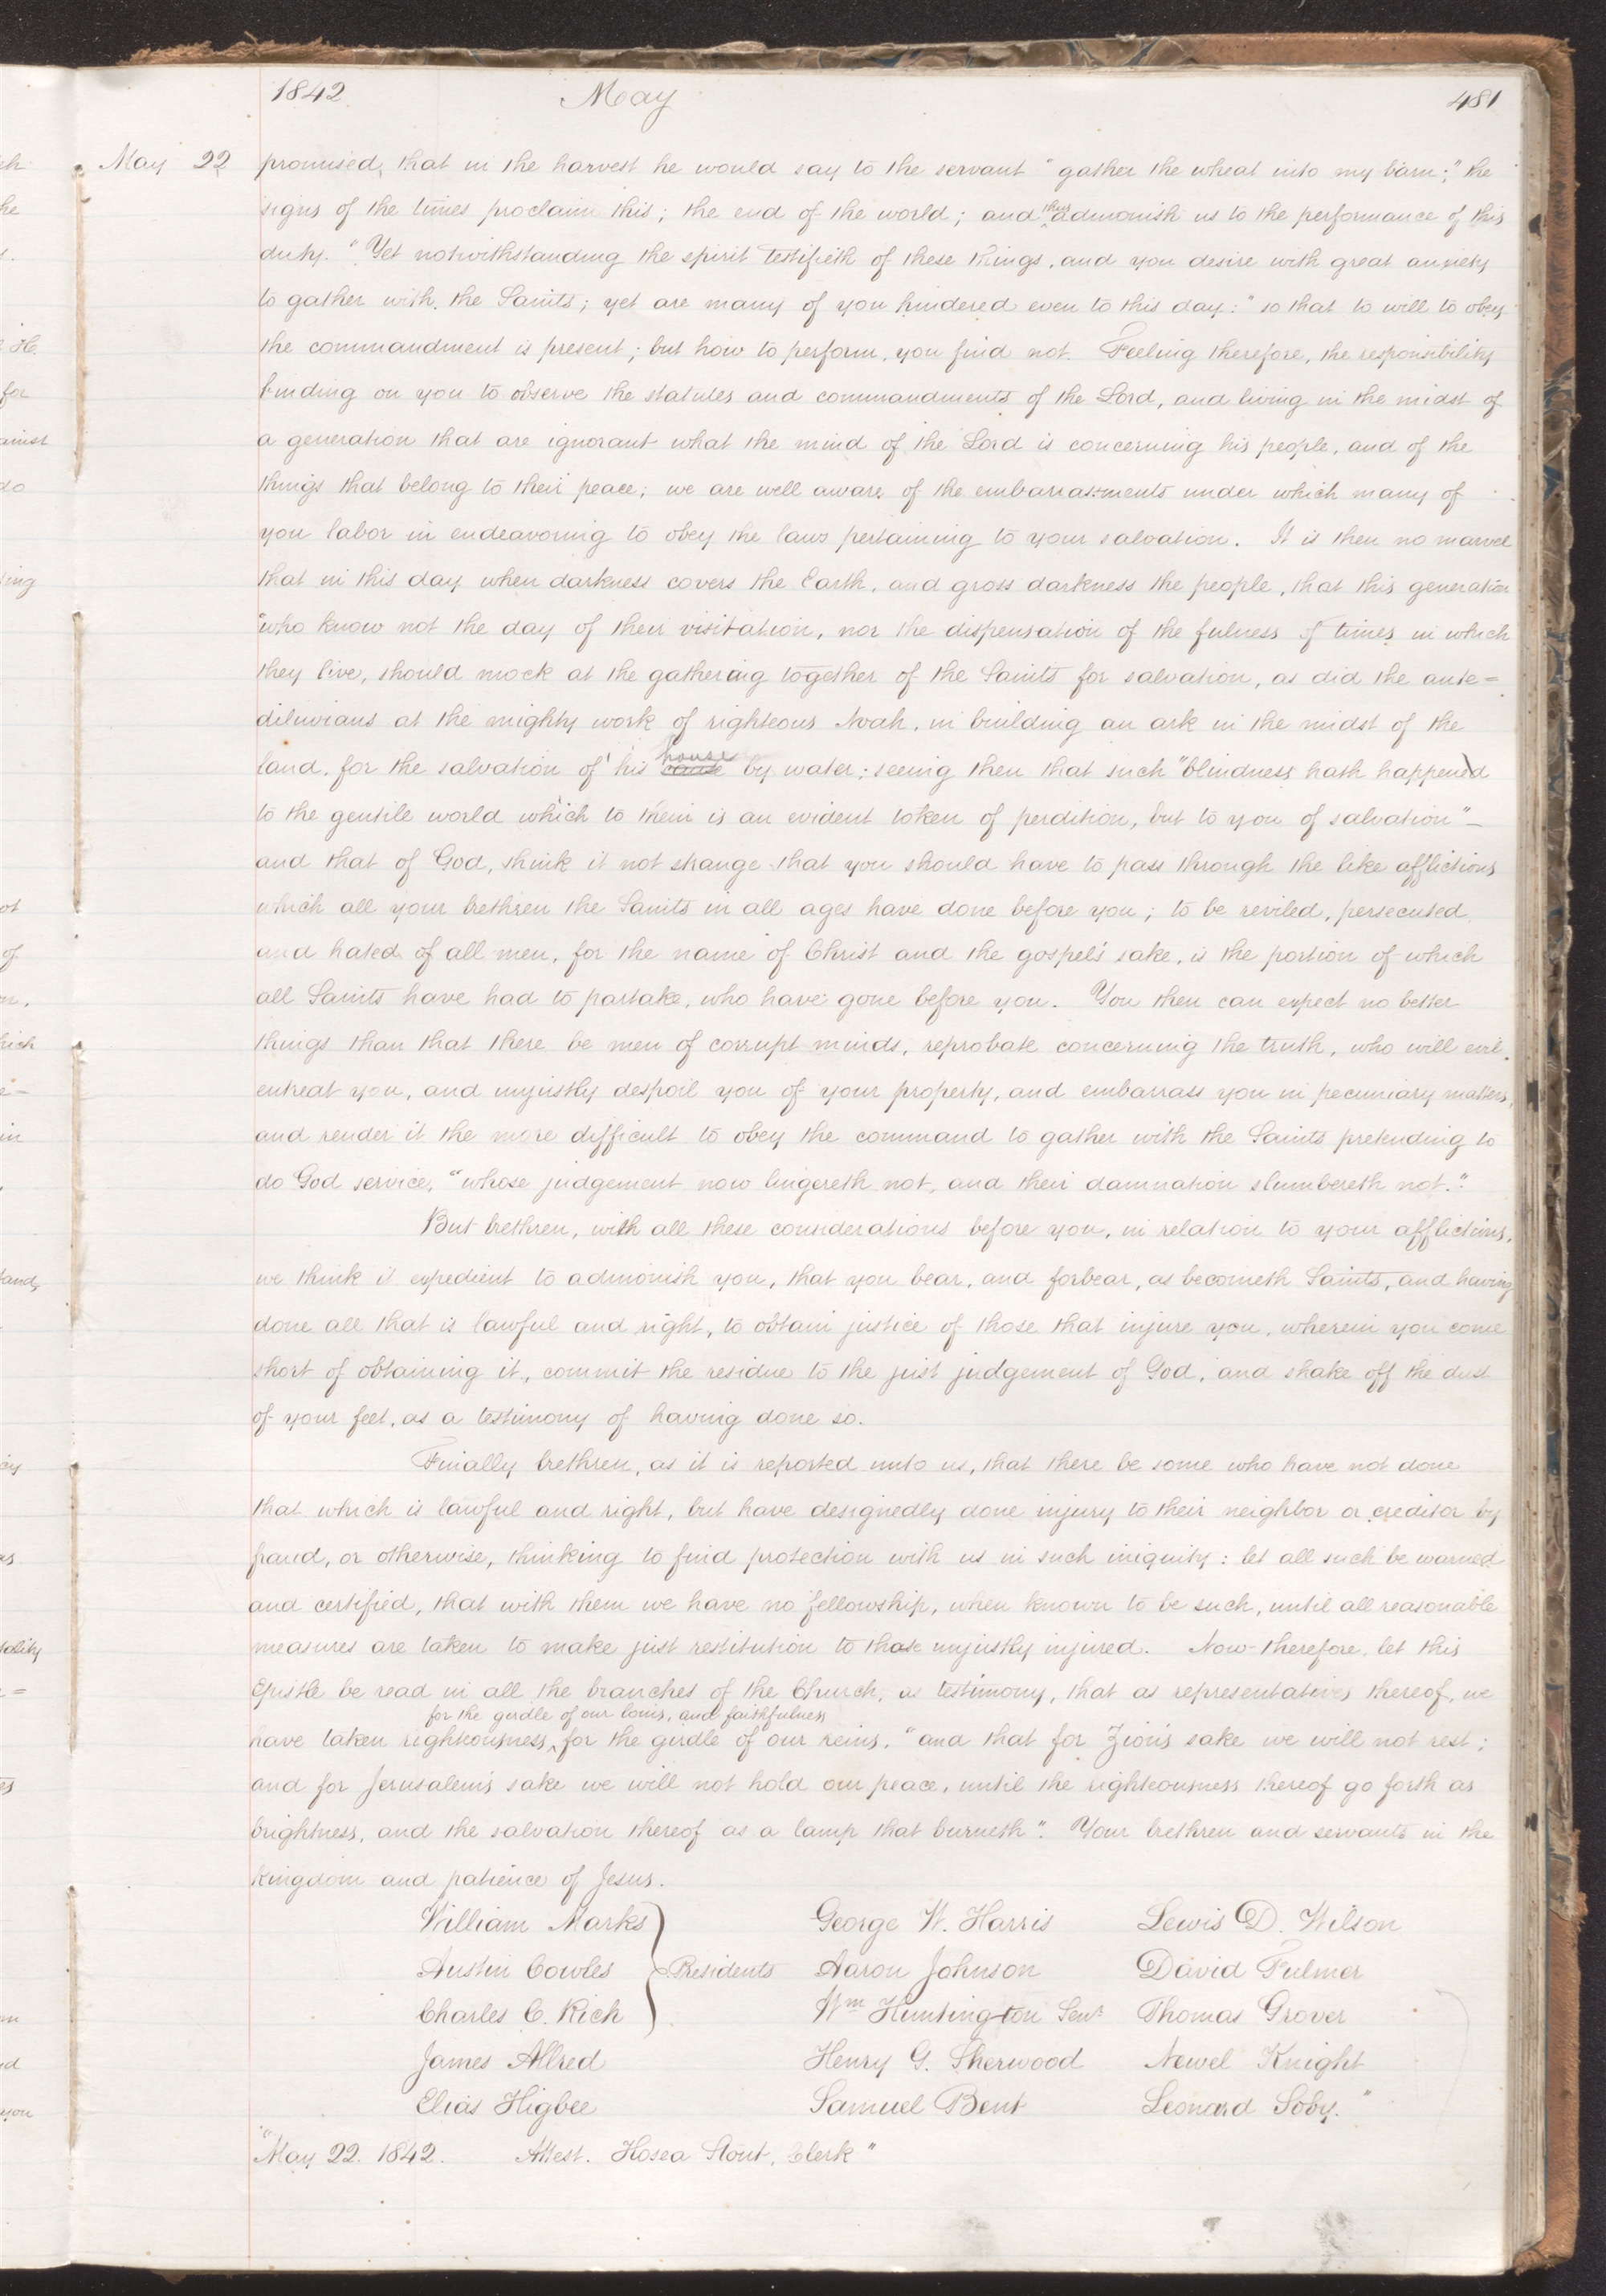 1842 May 481
May 22 promised, that in the harvest he would say to the servant "gather the wheat into my barn;" the
signs of the times proclaim this; the end of the world; and thus admonish us to the performance of this
duty. "Yet notwithstanding the spirit testifieth of these things, and you desire with great anxiety
to gather with the Saints; yet are many of you hindered even to this day:" so that to will to obey
the commandment is present; but how to perform, you find not. Feeling therefore, the responsibility
binding on you to observe the statutes and commandments of the Lord, and living in the midst of
a generation that are ignorant what the mind of the Lord is concerning his people, and of the
things that belong to their peace; we are well aware of the embarrassments under which many of
you labor in endeavoring to obey the laws pertaining to your salvation. It is then no marvel
that in this day when darkness covers the Earth, and gross darkness the people, that this generation
"who know not the day of their visitation, nor the dispensation of the fulness of times in which
they live, should mock at the gathering together of the Saints for salvation, as did the ante=
diluvians at the mighty work of righteous Noah, in building an ark in the midst of the
land, for the salvation of his house by water; seeing then that such "blindness hath happened
to the gentile world which to them is an evident token of perdition, but to you of salvation"—
and that of God, think it not strange that you should have to pass through the like afflictions
which all your brethren the Saints in all ages have done before you; to be reviled, persecuted,
and hated of all men, for the name of Christ and the gospel's sake, is the portion of which
all Saints have had to partake, who have gone before you. You then can expect no better
things than that there be men of corrupt minds, reprobate concerning the truth, who will evil
entreat you, and unjustly despoil you of your property, and embarrass you in pecuniary matters,
and render it the more difficult to obey the command to gather with the Saints pretending to
do God service, "whose judgement now lingereth not, and their damnation slumbereth not."
But brethren, with all these considerations before you, in relation to your afflictions,
we think it expedient to admonish you, that you bear, and forbear, as becometh Saints, and having
done all that is lawful and right, to obtain justice of those that injure you, wherein you come
short of obtaining it, commit the residue to the just judgement of God, and shake off the dust
of your feet, as a testimony of having done so.
Finally brethren, as it is reported unto us, that there be some who have not done
that which is lawful and right, but have designedly done injury to their neighbor or creditor by
fraud, or otherwise, thinking to find protection with us in such iniquity: let all such be warned
and certified, that with them we have no fellowship, when known to be such, until all reasonable
measures are taken to make just restitution to those unjustly injured. Now therefore, let this
Epistle be read in all the branches of the Church, as testimony, that as representatives thereof, we
for the girdle of our loins, and faithfulness
have taken righteousness, for the girdle of our reins, "and that for Zion's sake we will not rest;
and for Jerusalem's sake we will not hold our peace, until the righteousness thereof go forth as
brightness, and the salvation thereof as a lamp that burneth". Your brethren and servants in the
kingdom and patience of Jesus.
William Marks George W. Harris Lewis D. Wilson
Austin Cowles Presidents Aaron Johnson David Fulmer
Charles C. Rich Wm Huntington Senr Thomas Grover
James Allred Henry G. Sherwood Newel Knight
Elias Higbee Samuel Bent Leonard Soby."
"May 22. 1842. Attest. Hosea Stout, Clerk"